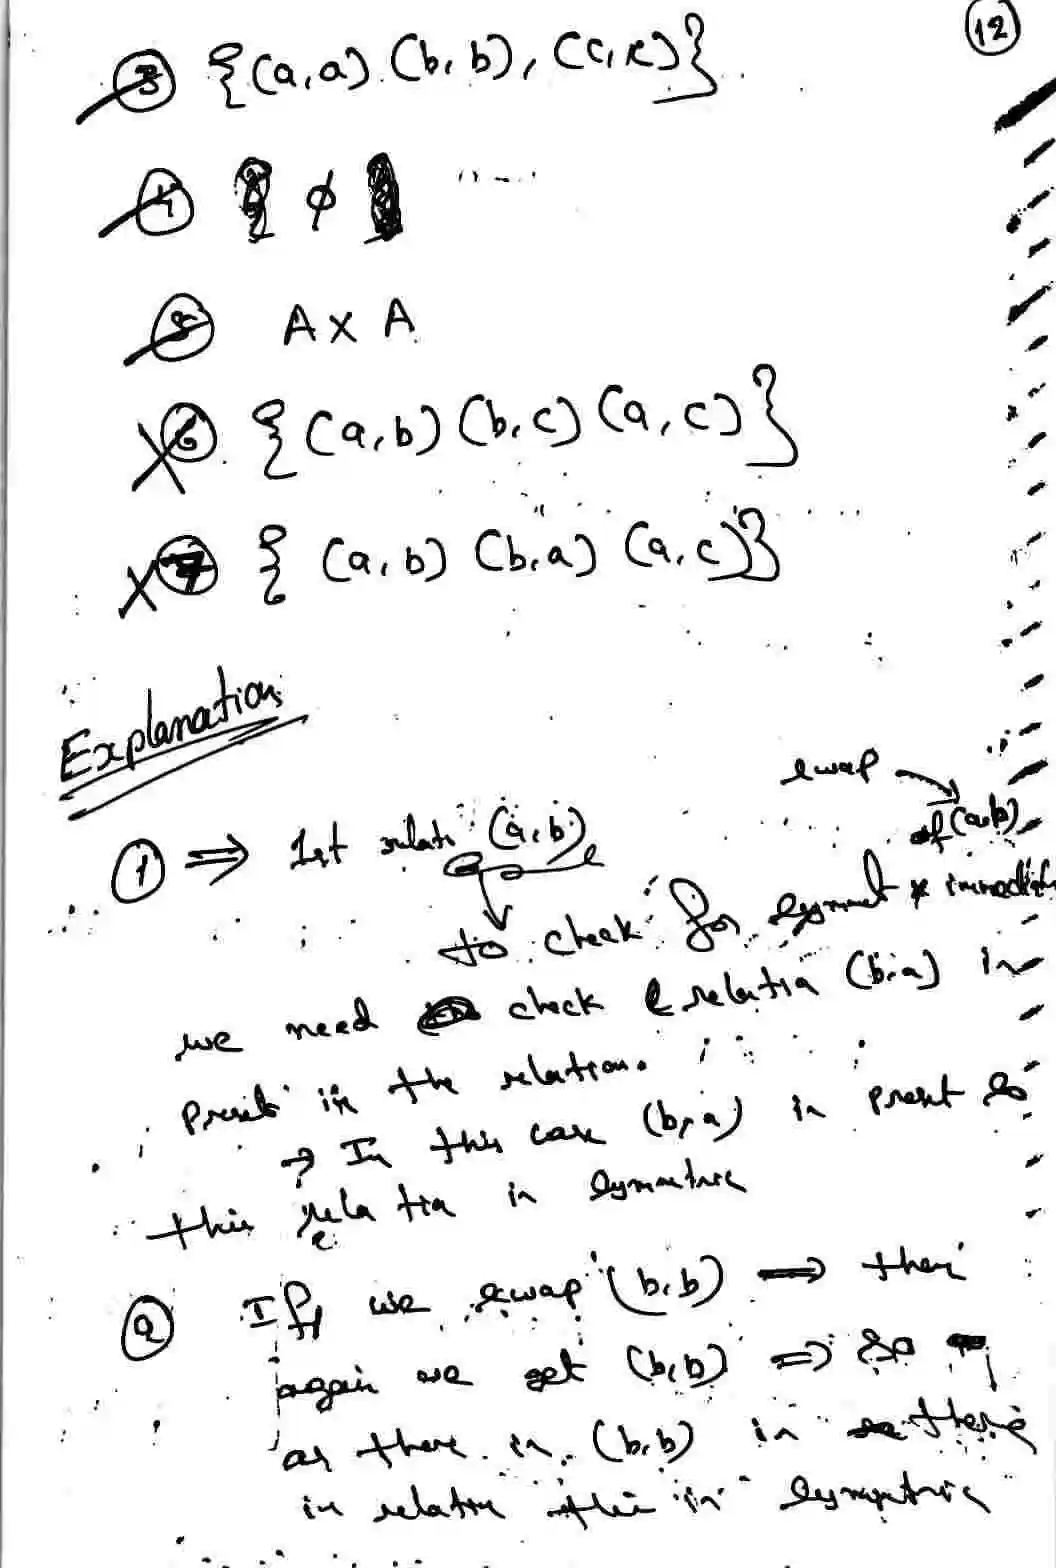 12
3 {(a,a) (b,b), (c,c)}
4 ϕ
5 A x A
6 {(a,b) (b,c) (a,c)}
7 { (a,b) (b,a) (a,c)}
Explanation
swap
1 ⇒ 1st relati (a,b) of (a,b)
to check for symmet
we need check relation (b,a) is
present in the relation.
→ In this case (b,a) is present so
this relation is symmetric
2 If we swap (b,b) ⇒ then
again we get (b,b) ⇒ so
as there is (b,b) in there
in relation this is symmetric